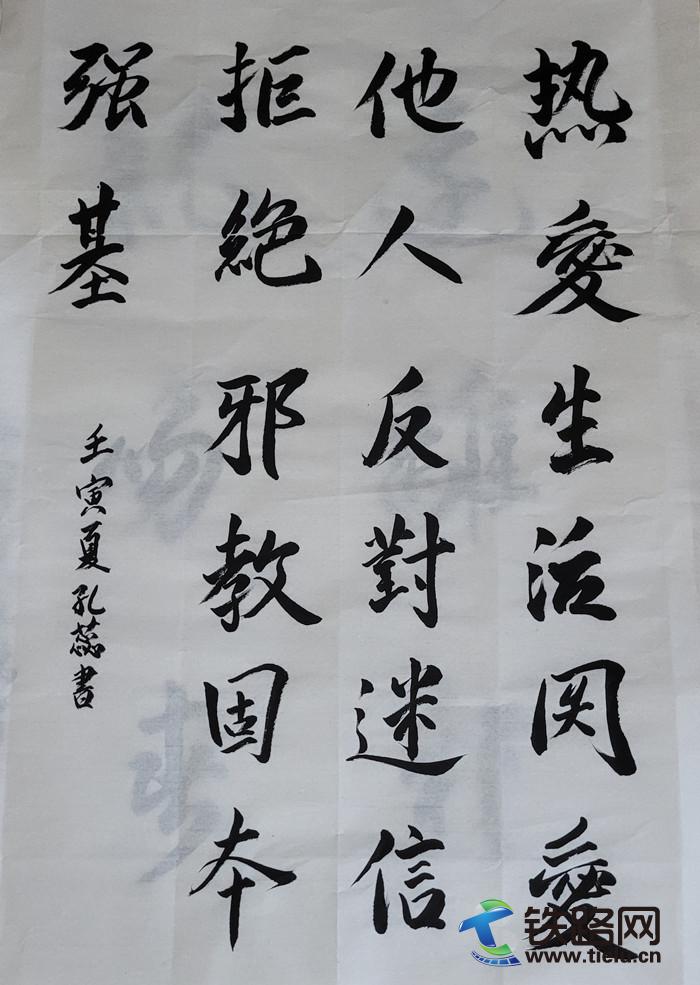 热愛生活関愛
他人反對迷信
拒絶邪教固本
强基
壬寅夏孔蕊書
铁路网
www.tielu.cn